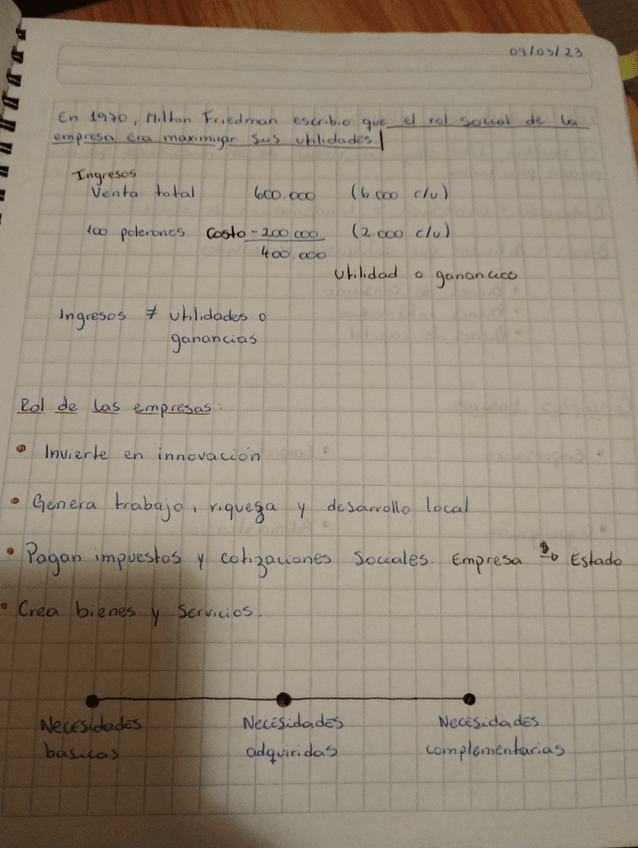 09/03/23
En 1970, Milton Friedman escribio que el rol social de la
empresa era maximizar sus utilidades
Ingresos
Venta total 600.000 (6.000 c/u)
100 polerones Costo -200.000 (2.000 c/u)
400.000
Utilidad o ganancia
Ingresos ≠ utilidades o
ganancias
Rol de las empresas:
• Invierte en innovación
• Genera trabajo, riqueza y desarrollo local
• Pagan impuestos y cotizaciones sociales. Empresa $→ Estado
• Crea bienes y servicios.
Necesidades básicas
Necesidades adquiridas
Necesidades complementarias